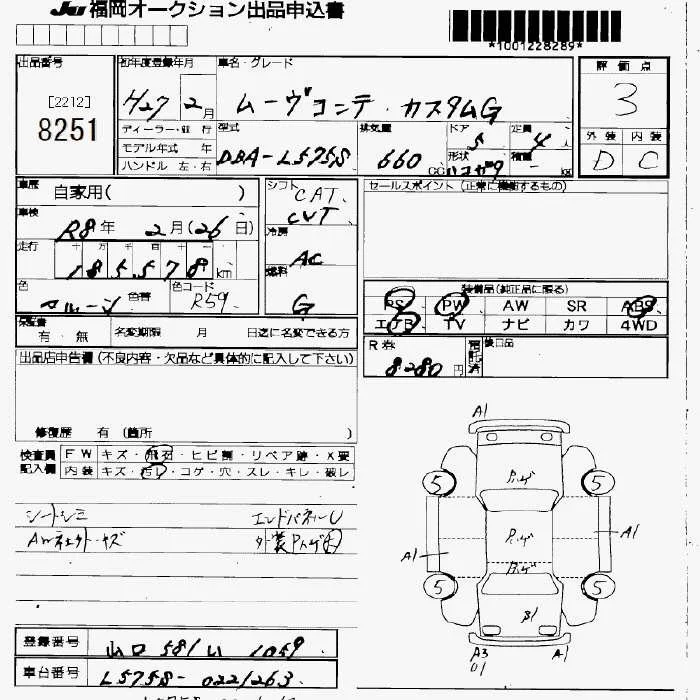 JU 福岡オークション出品申込書
*1001228289*
出品番号
[2212]
8251
初年度登録年月
H27 2月
車名・グレード
ムーヴコンテ・カスタムG
評価点
3
外装 内装
D C
ディーラー・並行
モデル年式 年
ハンドル 左・右
型式
DBA-L575S
排気量
660 CC
ドア
5
形状
ハコガタ
定員
4人
積量
車歴
自家用( )
車検
R8年 2月(26日)
走行
十万千百十
185578km
色
マルーン
色替
色コード
R59
シフト
CAT.
CVT
冷房
AC
燃料
G
セールスポイント(正常に機能するもの)
装備品(純正品に限る)
PS PW AW SR ABS
エアB TV ナビ カワ 4WD
保証書
有・無
名変期限 月 日迄に名変できる方
R券
8280円
預託済
後日品
出品店申告欄(不良内容・欠品など具体的に記入して下さい)
修復歴 有(箇所 )
検査員記入欄
FW キズ・飛石・ヒビ割・リペア跡・X要
内装 キズ・汚レ・コゲ・穴・スレ・キレ・破レ
シートシミ
エンドパネルU
AWキズ
A1
5
5
A1
A1
5
5
B1
A3
01
A1
登録番号
山口 581 い 1059
車台番号
L575S-0221263